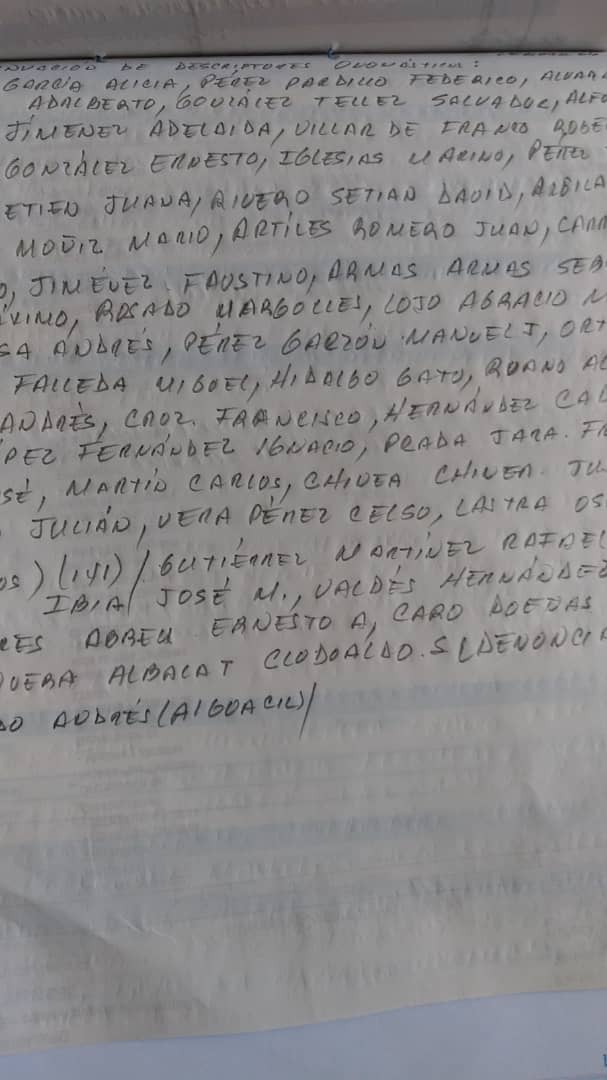 NUACIÓN DE DESCRIPTORES ONOMÁSTICOS:
GARCÍA ALICIA, PÉREZ PARDILLO FEDERICO, ALVAR
ADALBERTO, GONZÁLEZ TELLEZ SALVADOR, ALFO
JÍMENEZ ADELAIDA, VILLAR DE FRANCO ROBE
GONZÁLEZ ERNESTO, IGLESIAS MARINO, PÉREZ
ETIEN JUANA, RIVERO SETIAN DAVID, ARBILA
MOÑIZ MARIO, ARTÍLES ROMERO JUAN, CARR
O, JIMÉNEZ FAUSTINO, ARMAS ARMAS SEB
ÁXIMO, ROSADO MARGOLLES, LOJO AGRACIO M
SA ANDRÉS, PÉREZ GARZÓN MANUEL J, ORT
FALLEDA MIGUEL, HIDALGO GATO, RUANO AL
ANDRÉS, CROZ. FRANCISCO, HERNÁNDEZ CA
PEZ FERNÁNDEZ IGNACIO, PRADA JARA. FR
SÉ, MARTÍN CARLOS, CHINEA CHINEA JU
JULIÁN, VERA PÉREZ CELSO, LASTRA OS
OS) (141) / GUTIÉRREZ MARTÍNEZ RAFAEL
IBIA/ JOSÉ M., VALDÉS HERNÁNDEZ
RES ABREU ERNESTO A, CARO DOEÑAS
QUERA ALBALAT CLODOALDO. S (DENONCIA
DO ANDRÉS (ALGUACIL)/